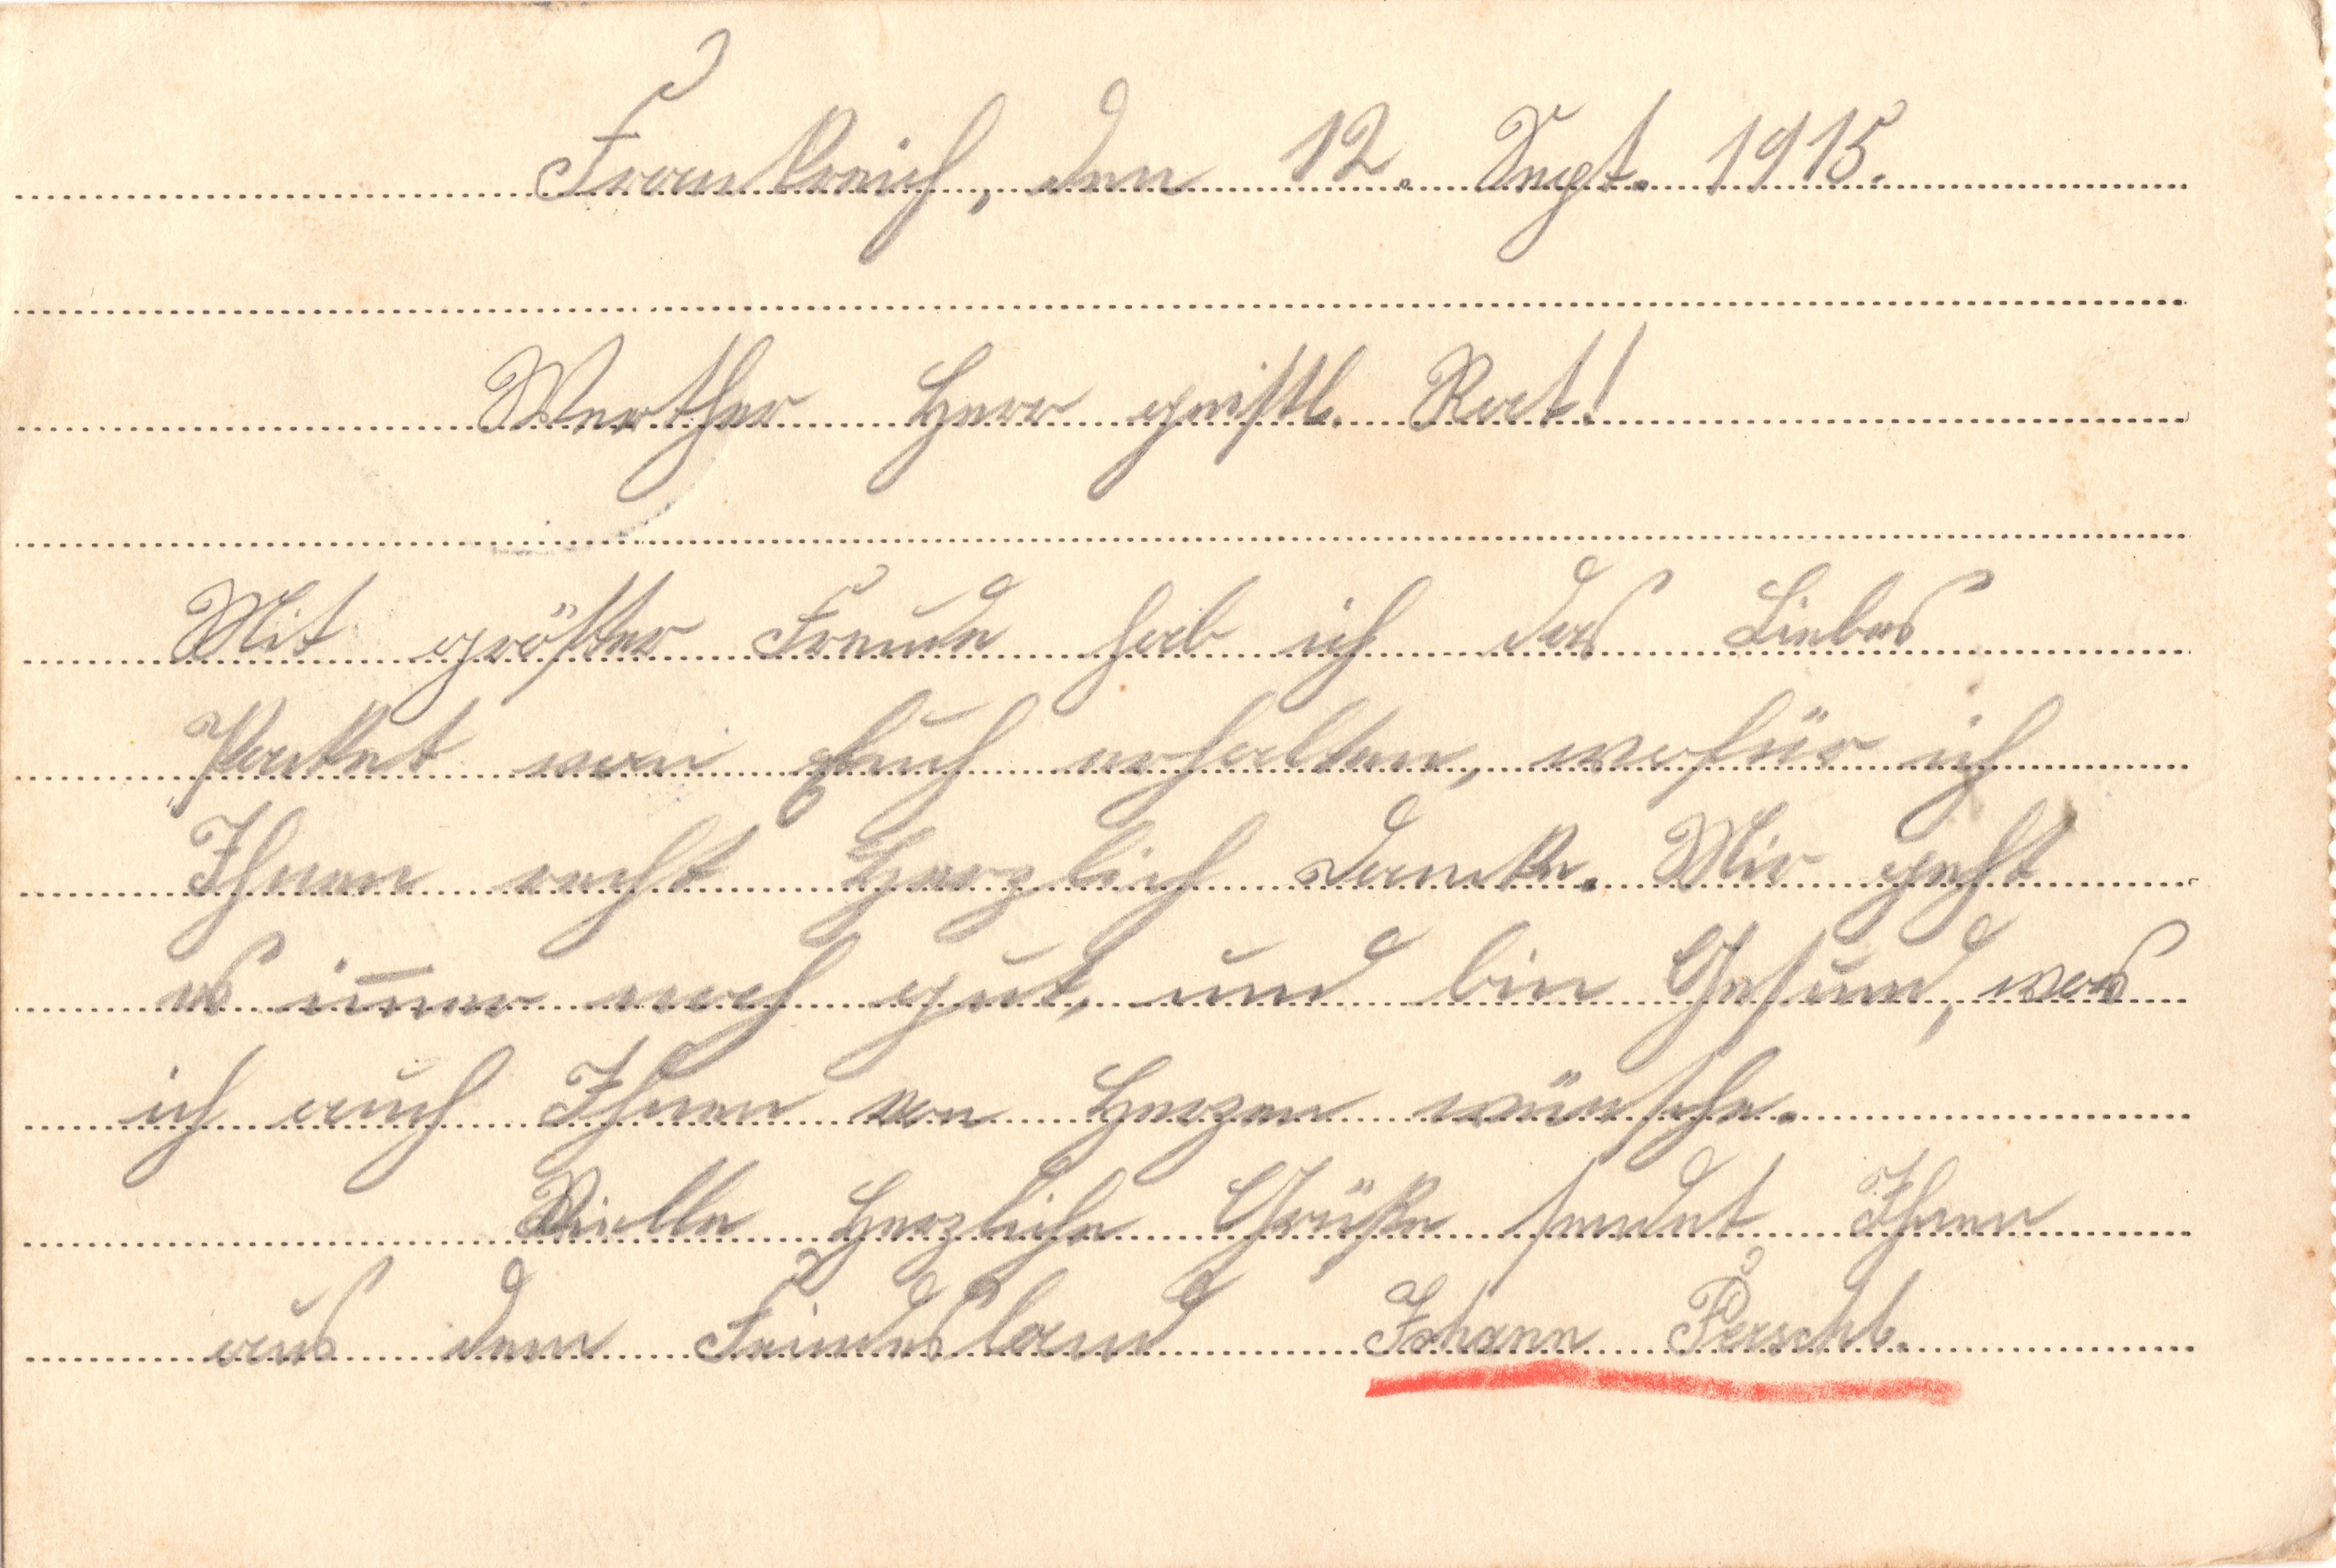 Frankreich, den 12. Sept. 1915.
Werther Herr geistl. Rat!
Mit größter Freude hab ich das Liebes
Paket von Euch erhalten, wofür ich
Ihnen recht Herzlich danke. Mir geht
es im̄er noch gut, und bin Gesund, was
ich auch Ihnen von Herzen wünsche.
Vielle Herzliche Grüße sendet Ihnen
aus dem Feindesland Johann Perschl.